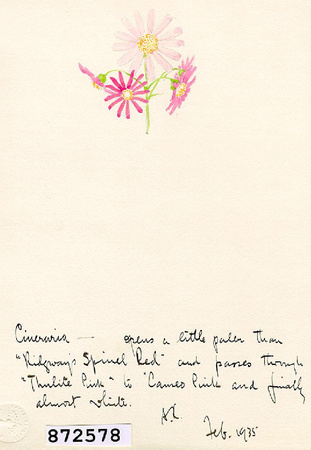 Cineraria — opens a little paler than
"Ridgways Spinel Red" and passes through
"Thulite Pink" to "Cameo Pink and finally
almost white.
Feb. 1935
872578